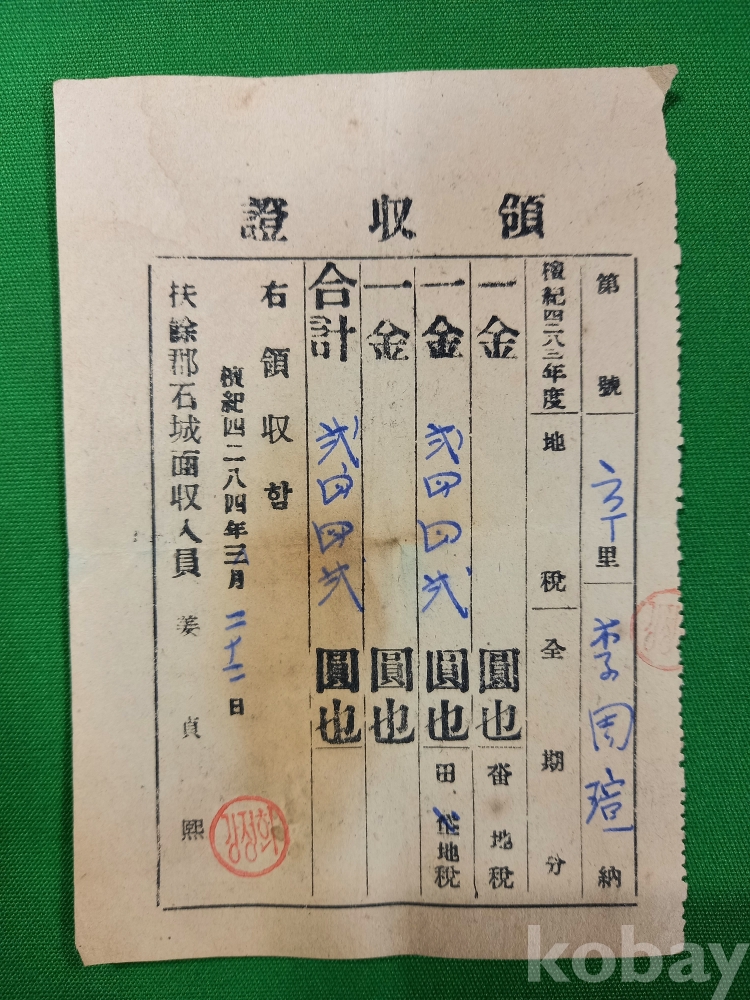 領收證
第 號 里 李周瑄 納
檀紀四二八三年度 地稅 全期分
一金 圓也 畓地稅
一金 弐四四弐 圓也 田垈地稅
一金 圓也
合計 弐四四弐 圓也
右領収함
檀紀四二八四年三月二十二日
扶餘郡石城面収入員 姜貞熙
강정희
kobay